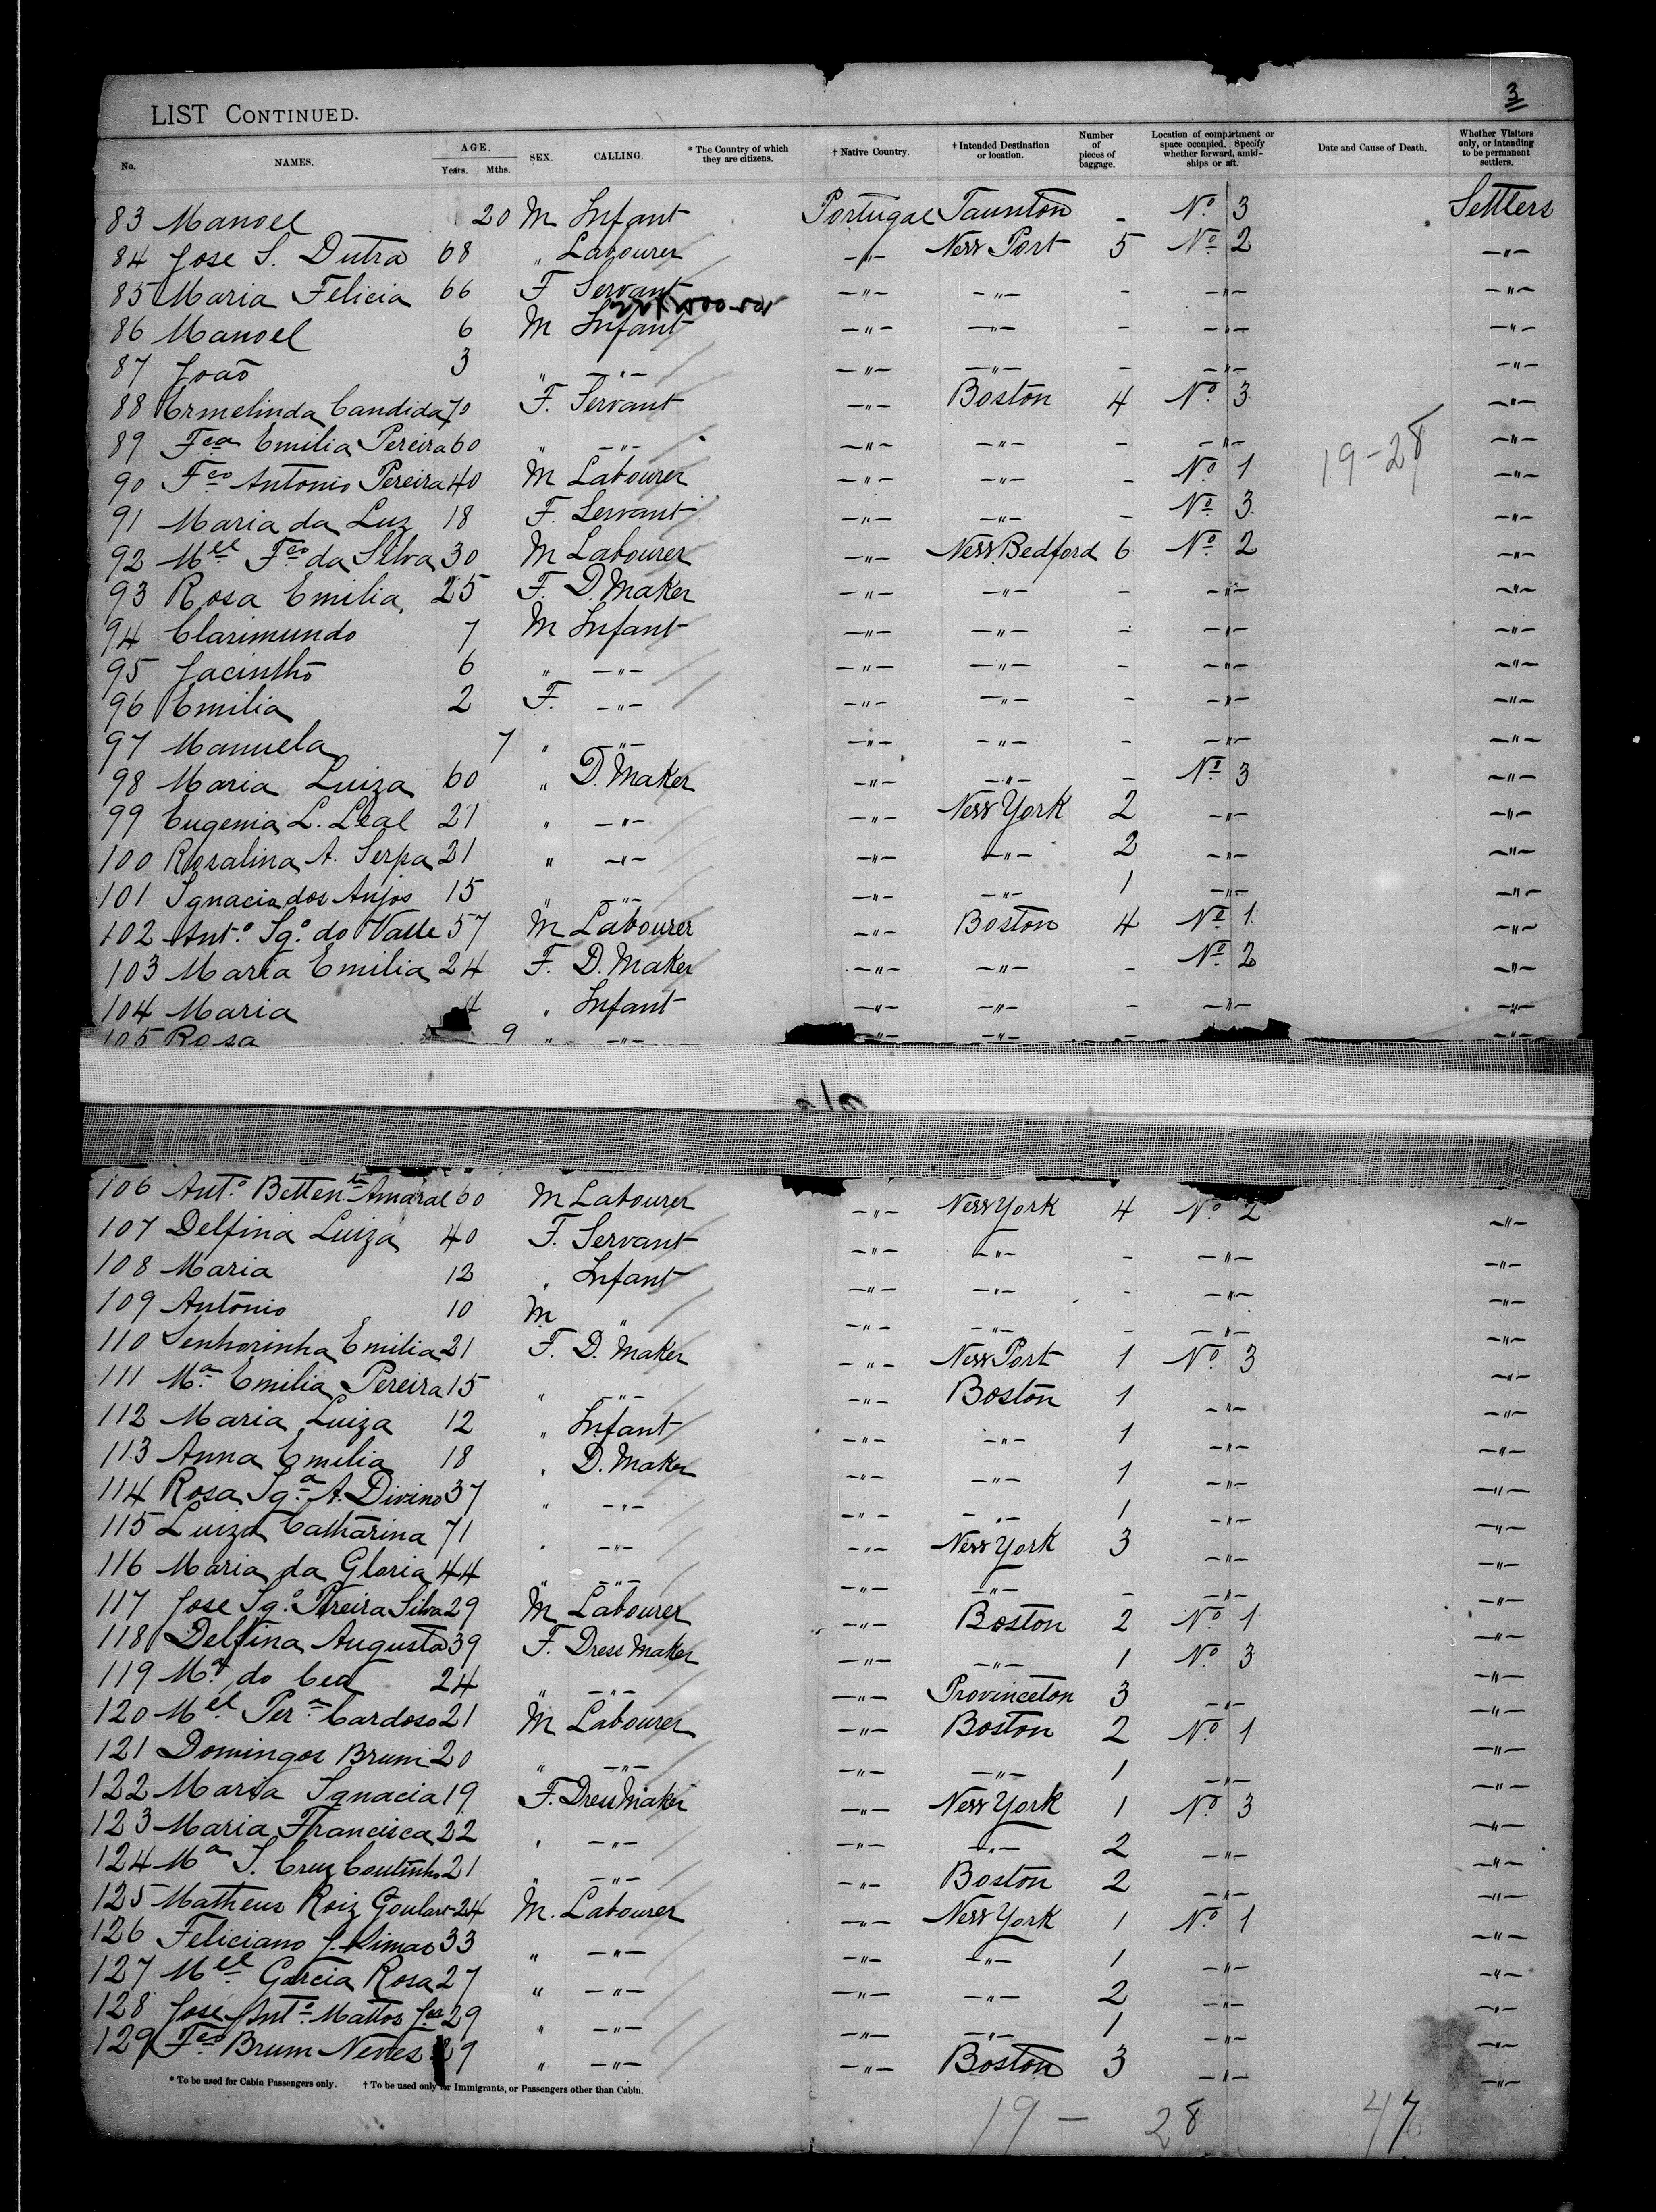 3
LIST CONTINUED.
No. NAMES. AGE. Years. Mths. SEX. CALLING. * The Country of which they are citizens. † Native Country. † Intended Destination or location. Number of pieces of baggage. Location of compartment or space occupied. Specify whether forward, amid-ships or aft. Date and Cause of Death. Whether Visitors only, or intending to be permanent settlers.
83 Manoel 20 M Infant Portugal Taunton - Nº 3 Settlers
84 Jose S. Dutra 68 " Labourer -"- New Port 5 Nº 2 -"-
85 Maria Felicia 66 F Servant -"- -"- - -"- -"-
86 Manoel 6 M Infant -"- -"- - -"- -"-
87 João 3 " -"- -"- -"- - -"- -"-
88 Ermelinda Candida 70 F. Servant -"- Boston 4 Nº 3 -"-
89 Fca Emilia Pereira 60 " -"- -"- -"- - -"- 19-28 -"-
90 Fco Antonio Pereira 40 M Labourer -"- -"- - Nº 1 -"-
91 Maria da Luz 18 F. Servant -"- -"- - Nº 3 -"-
92 Mel Fco da Silva 30 M Labourer -"- New Bedford 6 Nº 2 -"-
93 Rosa Emilia 25 F. D. Maker -"- -"- - -"- -"-
94 Clarimundo 7 M Infant -"- -"- - -"- -"-
95 Jacintho 6 " -"- -"- -"- - -"- -"-
96 Emilia 2 F. -"- -"- -"- - -"- -"-
97 Manuela 7 " -"- -"- -"- - -"- -"-
98 Maria Luiza 60 " D. Maker -"- -"- - Nº 3 -"-
99 Eugenia L. Leal 21 " -"- -"- New York 2 -"- -"-
100 Rosalina A. Serpa 21 " -"- -"- -"- 2 -"- -"-
101 Ignacia dos Anjos 15 " -"- -"- -"- 1 -"- -"-
102 Antº Igº do Valle 57 M Labourer -"- Boston 4 Nº 1 -"-
103 Maria Emilia 24 F. D. Maker -"- -"- - Nº 2 -"-
104 Maria 4 " Infant -"- -"- - -"- -"-
105 Rosa 9 " -"- -"- -"- - -"- -"-
106 Antº Bettent Amaral 60 M Labourer -"- New York 4 Nº 2 -"-
107 Delfina Luiza 40 F. Servant -"- -"- - -"- -"-
108 Maria 12 " Infant -"- -"- - -"- -"-
109 Antonio 10 M " -"- -"- - -"- -"-
110 Senhorinha Emilia 21 F. D. Maker -"- New Port 1 Nº 3 -"-
111 Mª Emilia Pereira 15 " -"- -"- Boston 1 -"- -"-
112 Maria Luiza 12 " Infant -"- -"- 1 -"- -"-
113 Anna Emilia 18 " D. Maker -"- -"- 1 -"- -"-
114 Rosa Igª A. Divino 37 " -"- -"- -"- 1 -"- -"-
115 Luiza Catharina 71 " -"- -"- New York 3 -"- -"-
116 Maria da Gloria 44 " -"- -"- -"- - -"- -"-
117 Jose Igº Pereira Silva 29 M Labourer -"- Boston 2 Nº 1 -"-
118 Delfina Augusta 39 F. Dress Maker -"- -"- 1 Nº 3 -"-
119 Mª do Ceu 24 " -"- -"- Provinceton 3 -"- -"-
120 Mel Perª Cardoso 21 M Labourer -"- Boston 2 Nº 1 -"-
121 Domingos Brum 20 " -"- -"- -"- 1 -"- -"-
122 Maria Ignacia 19 F. Dress Maker -"- New York 1 Nº 3 -"-
123 Maria Francisca 22 " -"- -"- -"- 2 -"- -"-
124 Mª S. Cruz Coutinho 21 " -"- -"- Boston 2 -"- -"-
125 Matheus Roiz Goulart 24 M. Labourer -"- New York 1 Nº 1 -"-
126 Feliciano J. Simas 33 " -"- -"- -"- 1 -"- -"-
127 Mel Garcia Rosa 27 " -"- -"- -"- 2 -"- -"-
128 Jose Antº Mattos Jor 29 " -"- -"- -"- 1 -"- -"-
129 Fco Brum Neves 29 " -"- -"- Boston 3 -"- -"-
* To be used for Cabin Passengers only. † To be used only for Immigrants, or Passengers other than Cabin.
19 - 28 47